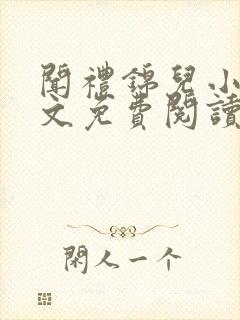 闻禮錦兒小
文免費閱讀
閑人一个